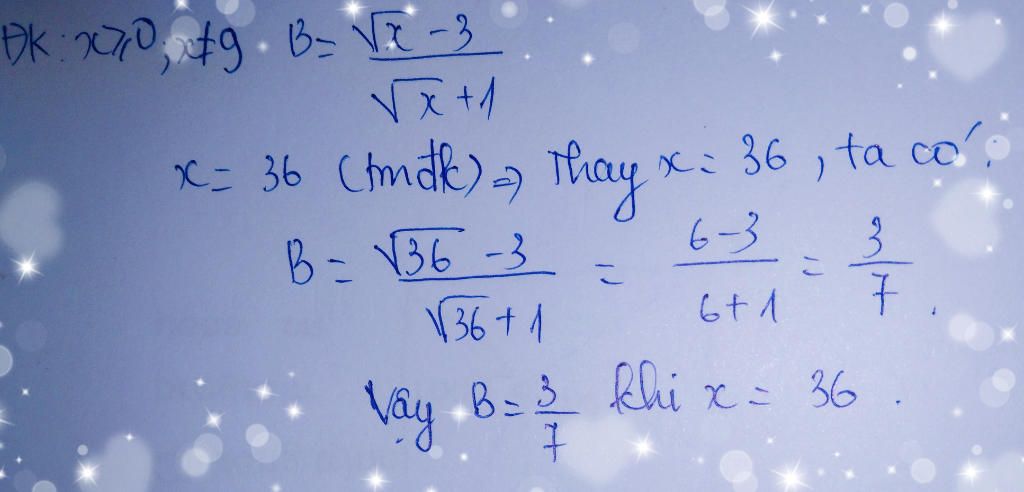 ĐK: x≥0; x≠9. B = (√x - 3)/(√x + 1)
x = 36 (tmđk) => Thay x = 36, ta có:
B = (√36 - 3)/(√36 + 1) = (6-3)/(6+1) = 3/7.
Vậy B = 3/7 khi x = 36.